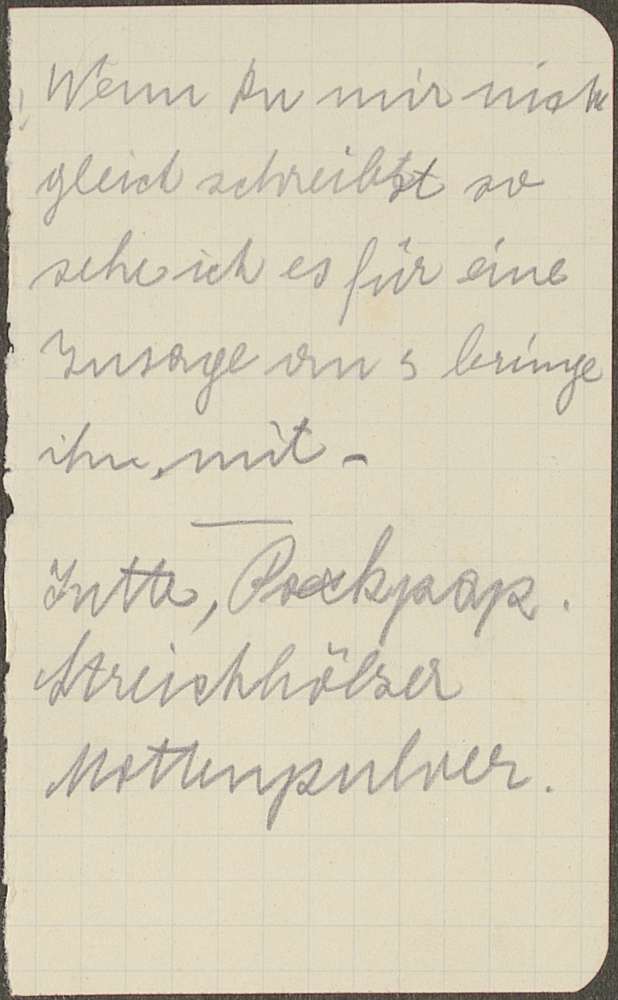 Wenn Du mir nicht
gleich schreibst so
sehe ich es für eine
Zusage an & bringe
ihn mit –
Jutta, Packpap.
Streichhölzer
Mottenpulver.